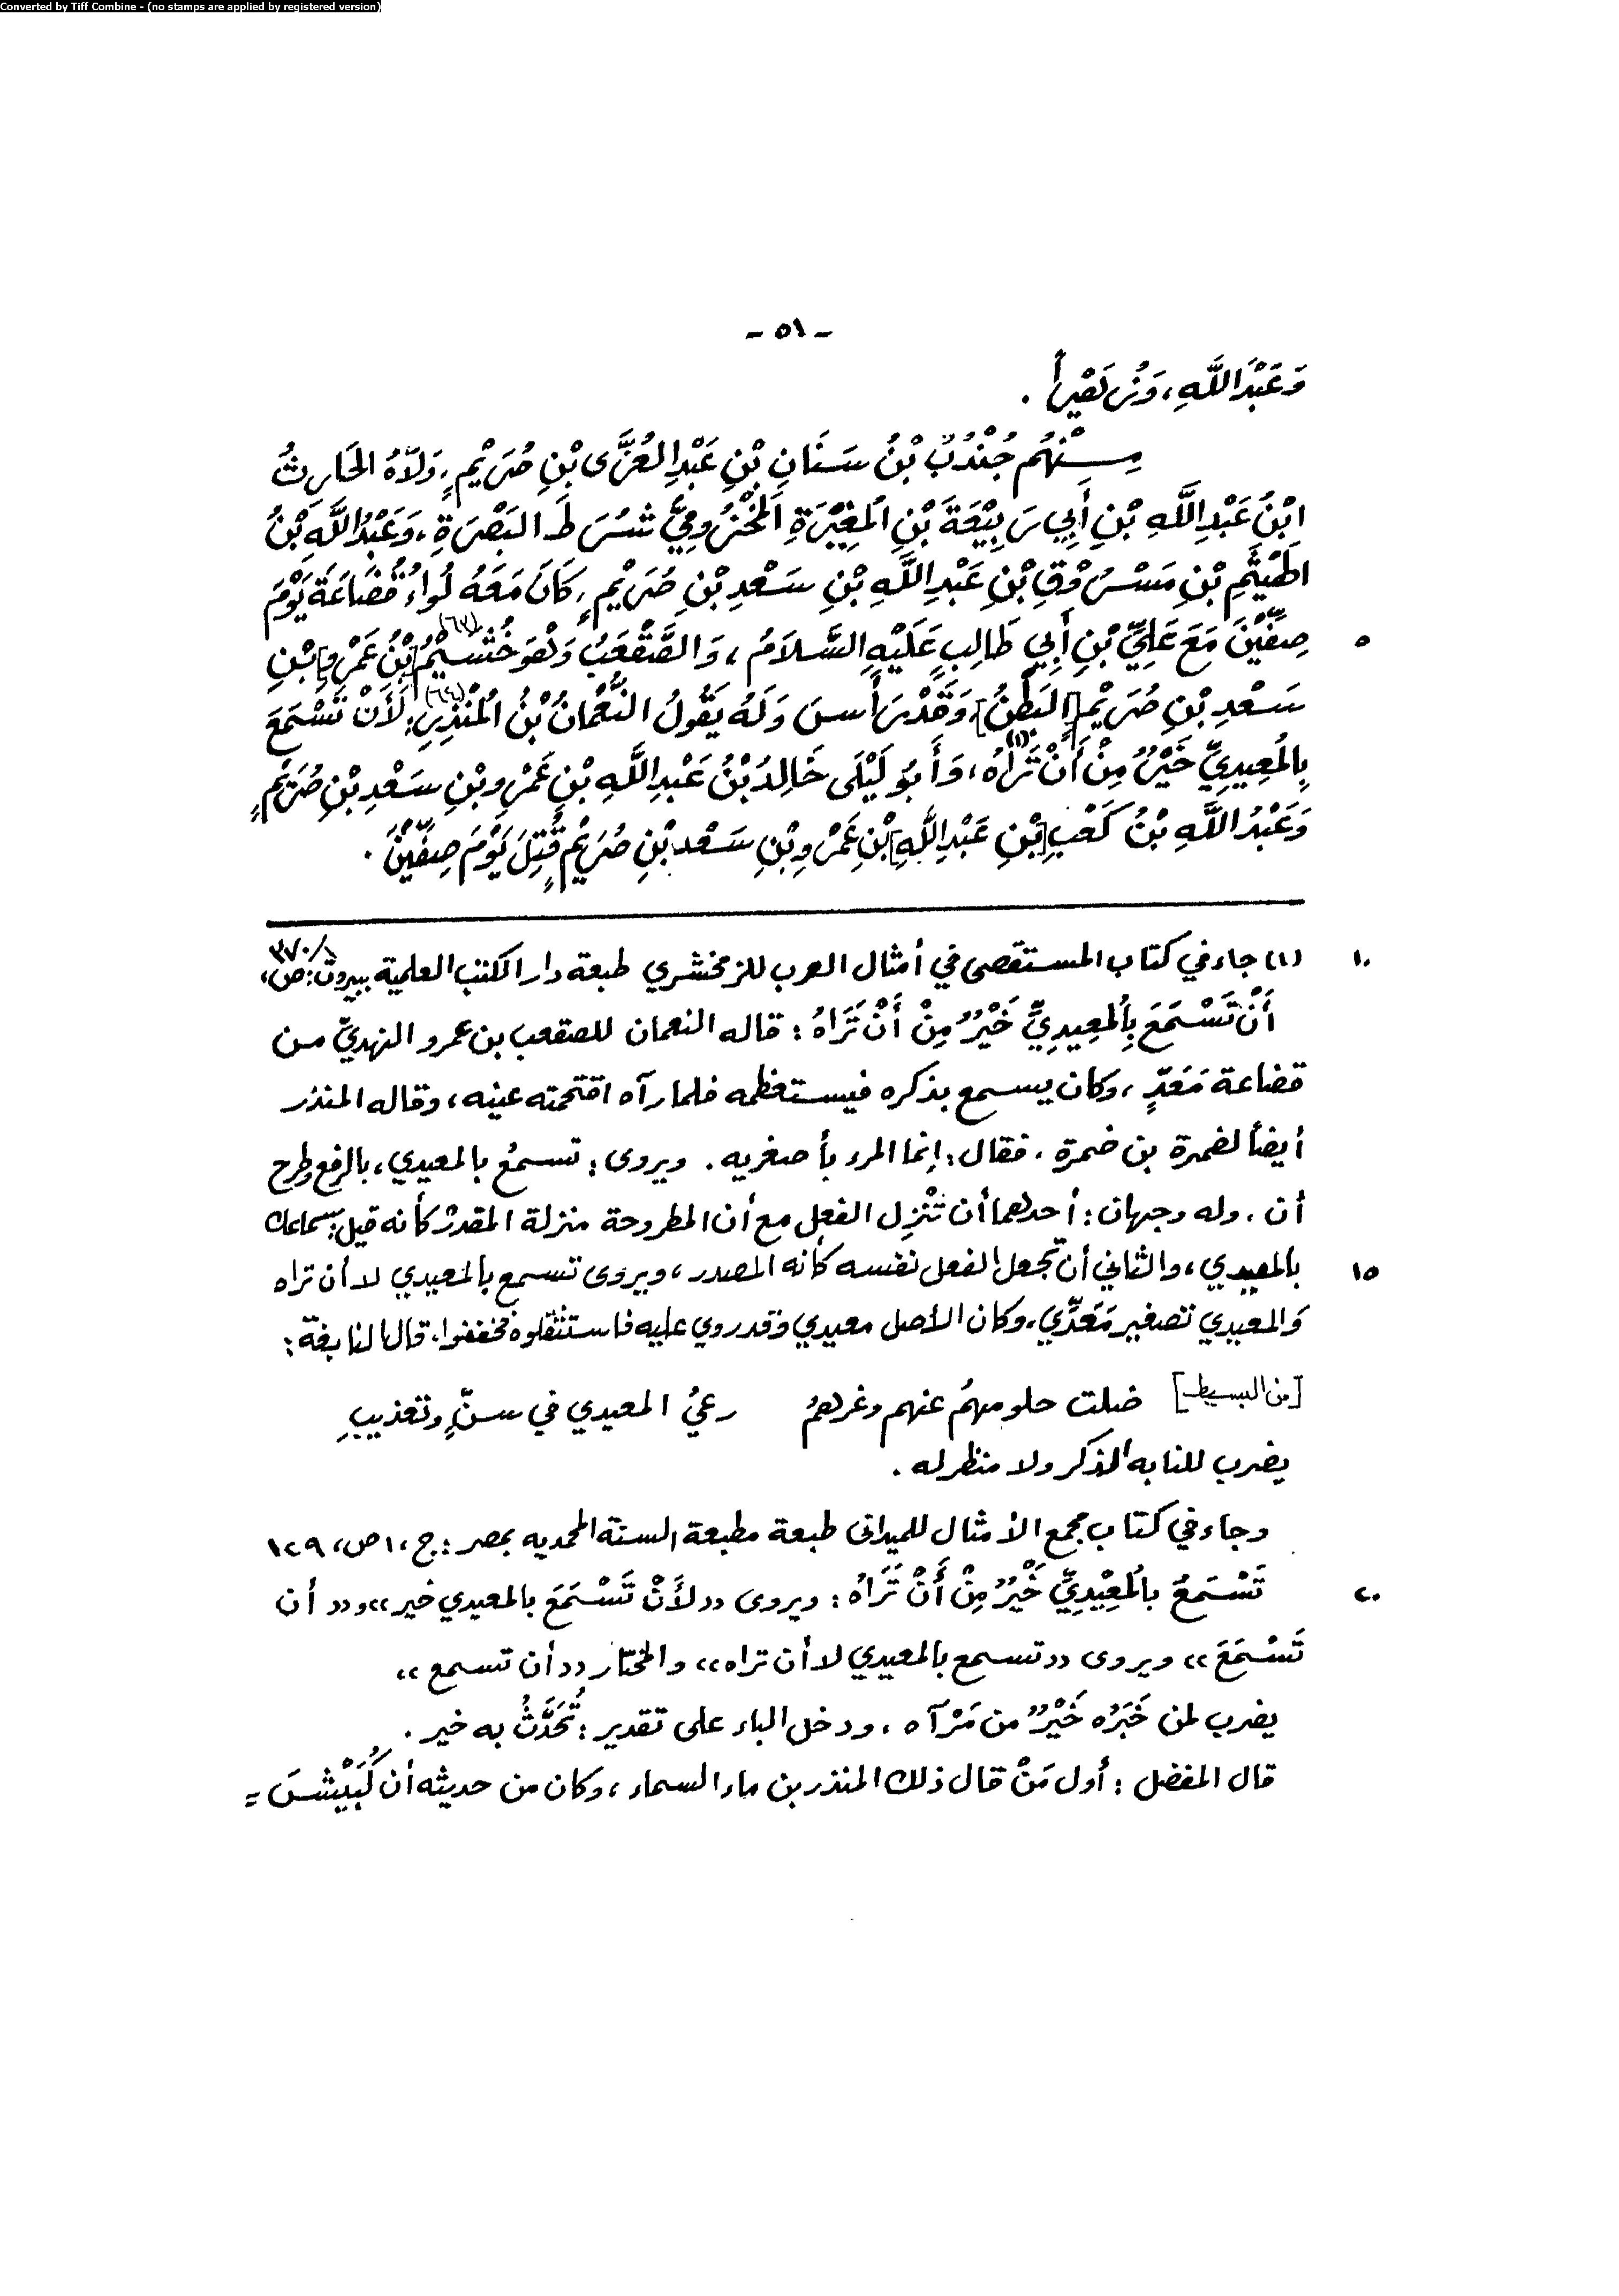 Converted by Tiff Combine - (no stamps are applied by registered version)
- ٥١ -
وَعَبْدَاللَّهِ، وَزُرَيْراً .
مِنْهُم جُنْدُبُ بْنُ سَنَانِ بْنِ عَبْدِالعُزَّى بْنِ صُرَيْمٍ، وَلاَّهُ الحَارِثُ
ابْنُ عَبْدِاللَّهِ بْنِ أَبِي رَبِيْعَةَ بْنِ المُغِيْرَةِ المَخْزُومِيُّ شُرَطَ البَصْرَةِ، وَعَبْدُاللَّهِ بْنُ
الهَيْثَمِ بْنِ مَسْرُوْقِ بْنِ عَبْدِاللَّهِ بْنِ سَعْدِ بْنِ صُرَيْمٍ، كَانَ مَعَهُ لُوَاءُ قُضَاعَةَ يَوْمَ
٥ صِفِّيْنَ مَعَ عَلِيِّ بْنِ أَبِي طَالِبٍ عَلَيْهِ السَّلاَمُ، وَالصَّقْعَبُ وَهْوَ خُشَيْمُ (٦٣) [بْنُ عَمْرِو] بْنِ
سَعْدِ بْنِ صُرَيْمٍ [البَطْنُ]، وَقَدْ رَأَسَ وَلَهُ يَقُولُ النُّعْمَانُ بْنُ المُنْذِرِ: (٦٤) لَأَنْ تَسْمَعَ
بِالمُعِيدِيِّ خَيْرٌ مِنْ أَنْ تَرَاهُ (١)، وَأَبُو لَيْلَى خَالِدُ بْنُ عَبْدِاللَّهِ بْنِ عَمْرِو بْنِ سَعْدِ بْنِ صُرَيْمٍ
وَعَبْدُ اللَّهِ بْنُ كَعْبِ [بْنِ عَبْدِاللَّهِ] بْنِ عَمْرِو بْنِ سَعْدِ بْنِ صُرَيْمٍ قُتِلَ يَوْمَ صِفِّيْنَ .
١٠ (١) جاء في كتاب المستقصى في أمثال العرب للزمخشري طبعة دار الكتب العلمية ببيروت: ص، ١/ ٣٧٠
أَنْ تَسْمَعَ بِالمُعِيدِيِّ خَيْرٌ مِنْ أَنْ تَرَاهُ : قاله النعمان للصقعب بن عمرو النهديّ من
قضاعة مَعَدٍّ ، وكان يسمع بذكره فيستعظمه فلما رآه اقتحمته عينه، وقاله المنذر
أيضاً لضمرة بن ضمرة ، فقال: إنما المرء بأصغريه . ويروى : تسمعُ بالمعيدي، بالرفع وطرح
أن . وله وجهان : أحدهما أن تُنْزِل الفعل مع أن المطروحة منزلة المقدر كأنه قيل: سماعك
١٥ بالمعيدي، والثاني أن تجعل الفعل نفسه كأنه المصدر، ويروى تسمع بالمعيدي لا أن تراه
وَالمعيدي تصغير مَعَدِّي، وكان الأصل معيدي وقد روي عليه فاستثقلوه فخففوا، قال النابغة :
[من البسيط] ضلت حلومهمُ عنهم وغرهمُ رعيُ المعيدي في سنٍّ وتعذيبِ
يضرب للنابه الذكر ولا منظر له .
وجاء في كتاب مجمع الأمثال للميداني طبعة مطبعة السنة المحمديه بمصر : ج ، ١ ص، ١٢٩
٢٠ تَسْمَعُ بالمُعِيْدِيِّ خَيْرٌ مِنْ أَنْ تَرَاهُ : ويروى «لَأَنْ تَسْمَعَ بالمعيدي خير» و«أن
تَسْمَعَ» ويروى «تسمع بالمعيدي لا أن تراه» والمختار «أن تسمع»
يضرب لمن خَبَرُه خَيْرٌ من مَرْآه ، ودخل الباء على تقدير : تُحَدَّثُ به خير .
قال المفضل : أول مَنْ قال ذلك المنذر بن ماء السماء ، وكان من حديثه أن كُبَيْشَ =